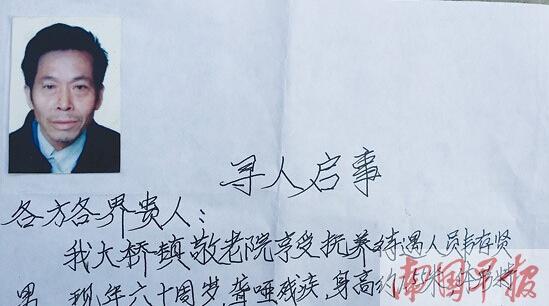 寻人启事
各方各界贵人:
我大桥镇敬老院享受抚养待遇人员韦存贤
男 现年六十周岁,聋哑残疾,身高约
南国早报